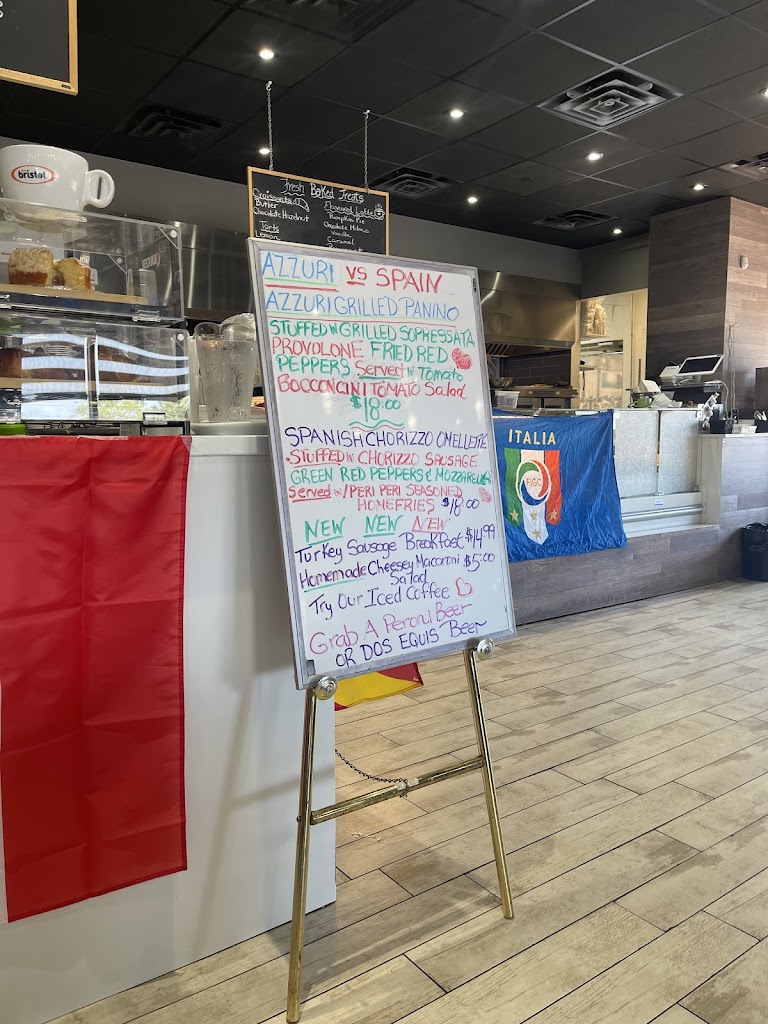 bristot
Fresh Baked Treats
Croissants
Butter
Chocolate Hazelnut
Tarts
Lemon
Flavoured Latte
Pumpkin Pie
Chocolate Milano
Vanilla
Caramel
AZZURI VS SPAIN
AZZURI GRILLED PANINO
STUFFED W GRILLED SOPRESSATA
PROVOLONE FRIED RED
PEPPERS Served W Tomato
BOCCONCINI TOMATO Salad
$18.00
SPANISH CHORIZZO OMELLETTE
STUFFED W CHORIZZO SAUSAGE
GREEN RED PEPPERS & MOZZARELLA
Served W/ PERI PERI SEASONED
HOMEFRIES $18.00
NEW NEW NEW
Turkey Sausage Breakfast $14.99
Homemade Cheesey Macaroni $5.00
Salad
Try Our Iced Coffee
Grab A Peroni Beer
OR DOS EQUIS Beer
ITALIA
FIGC